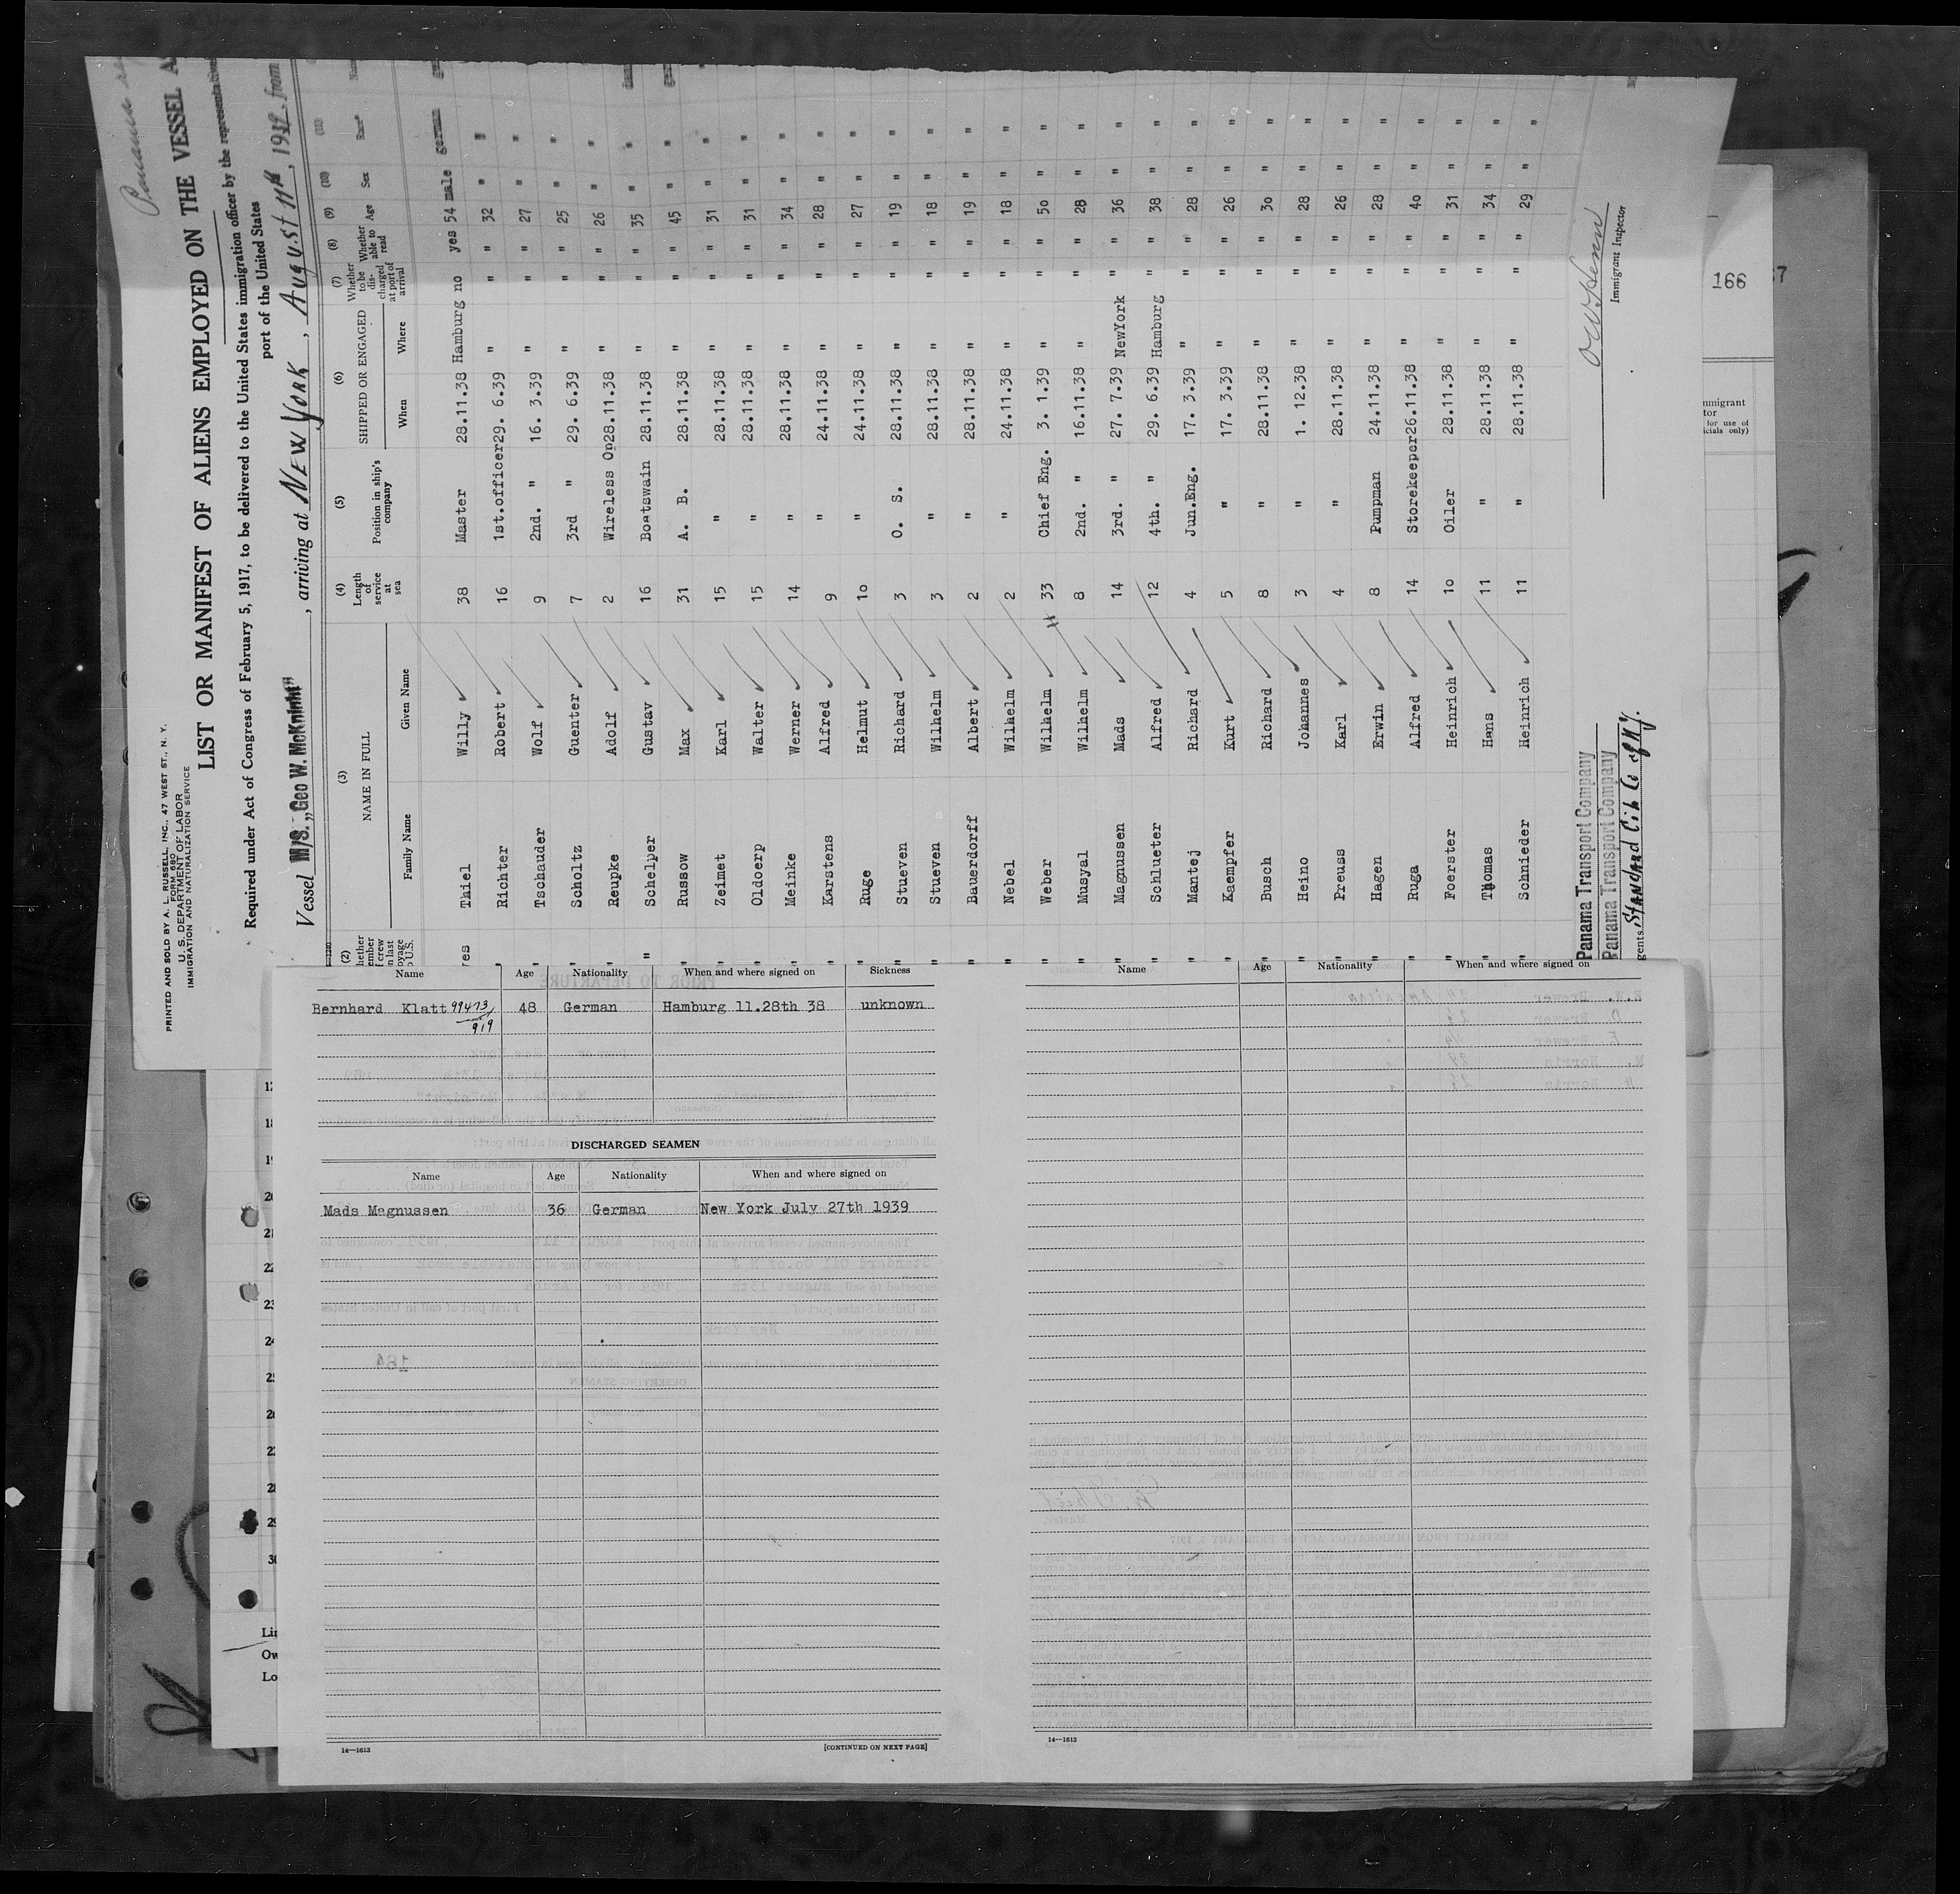 Panama
PRINTED AND SOLD BY A. L. RUSSELL, INC., 47 WEST ST., N. Y.
FORM 680
U. S. DEPARTMENT OF LABOR
IMMIGRATION AND NATURALIZATION SERVICE
LIST OR MANIFEST OF ALIENS EMPLOYED ON THE VESSEL
Required under Act of Congress of February 5, 1917, to be delivered to the United States immigration officer by the representatives
port of the United States
Vessel M/S. „Geo W. McKnight", arriving at NEW YORK, August 11th, 1939, from
(2) (3) (4) (5) (6) (7) (8) (9) (10) (11)
NAME IN FULL Length of service at sea Position in ship's company SHIPPED OR ENGAGED Whether to be discharged at port of arrival Whether able to read Age Sex Race*
Family Name Given Name When Where
Thiel Willy 38 Master 28.11.38 Hamburg no yes 54 male german
" Richter Robert 16 1st.officer 29. 6.39 " " " 32 " "
" Tschauder Wolf 9 2nd. " 16. 3.39 " " " 27 " "
" Scholtz Guenter 7 3rd " 29. 6.39 " " " 25 " "
" Reupke Adolf 2 Wireless Op 28.11.38 " " " 26 " "
" Schelper Gustav 16 Boatswain 28.11.38 " " " 35 " "
" Russow Max 31 A. B. 28.11.38 " " " 45 " "
" Zeimet Karl 15 " 28.11.38 " " " 31 " "
" Oldoerp Walter 15 " 28.11.38 " " " 31 " "
" Meinke Werner 14 " 28.11.38 " " " 34 " "
" Karstens Alfred 9 " 24.11.38 " " " 28 " "
" Ruge Helmut 10 " 24.11.38 " " " 27 " "
" Stueven Richard 3 O. S. 28.11.38 " " " 19 " "
" Stueven Wilhelm 3 " 28.11.38 " " " 18 " "
" Bauerdorff Albert 2 " 28.11.38 " " " 19 " "
" Nebel Wilhelm 2 " 24.11.38 " " " 18 " "
" Weber Wilhelm 33 Chief Eng. 3. 1.39 " " " 50 " "
" Musyal Wilhelm 8 2nd. " 16.11.38 " " " 28 " "
" Magnussen Mads 14 3rd. " 27. 7.39 NewYork " " 36 " "
" Schlueter Alfred 12 4th. " 29. 6.39 Hamburg " " 38 " "
" Mantej Richard 4 Jun.Eng. 17. 3.39 " " " 28 " "
" Kaempfer Kurt 5 " 17. 3.39 " " " 26 " "
" Busch Richard 8 " 28.11.38 " " " 30 " "
" Heino Johannes 3 " 1. 12.38 " " " 28 " "
" Preuss Karl 4 " 28.11.38 " " " 26 " "
" Hagen Erwin 8 Pumpman 24.11.38 " " " 28 " "
" Ruga Alfred 14 Storekeeper 26.11.38 " " " 40 " "
" Foerster Heinrich 10 Oiler 28.11.38 " " " 31 " "
" Thomas Hans 11 " 28.11.38 " " " 34 " "
" Schnieder Heinrich 11 " 28.11.38 " " " 29 " "
Panama Transport Company
Panama Transport Company
Standard Oil Co of N.J.
Immigrant Inspector
166
Name Age Nationality When and where signed on Sickness
Bernhard Klatt 99473/919 48 German Hamburg 11.28th 38 unknown
DISCHARGED SEAMEN
Name Age Nationality When and where signed on
Mads Magnussen 36 German New York July 27th 1939
14—1613 [CONTINUED ON NEXT PAGE]
Name Age Nationality When and where signed on
14—1613
18
19
20
21
22
23
24
25
26
27
28
29
30